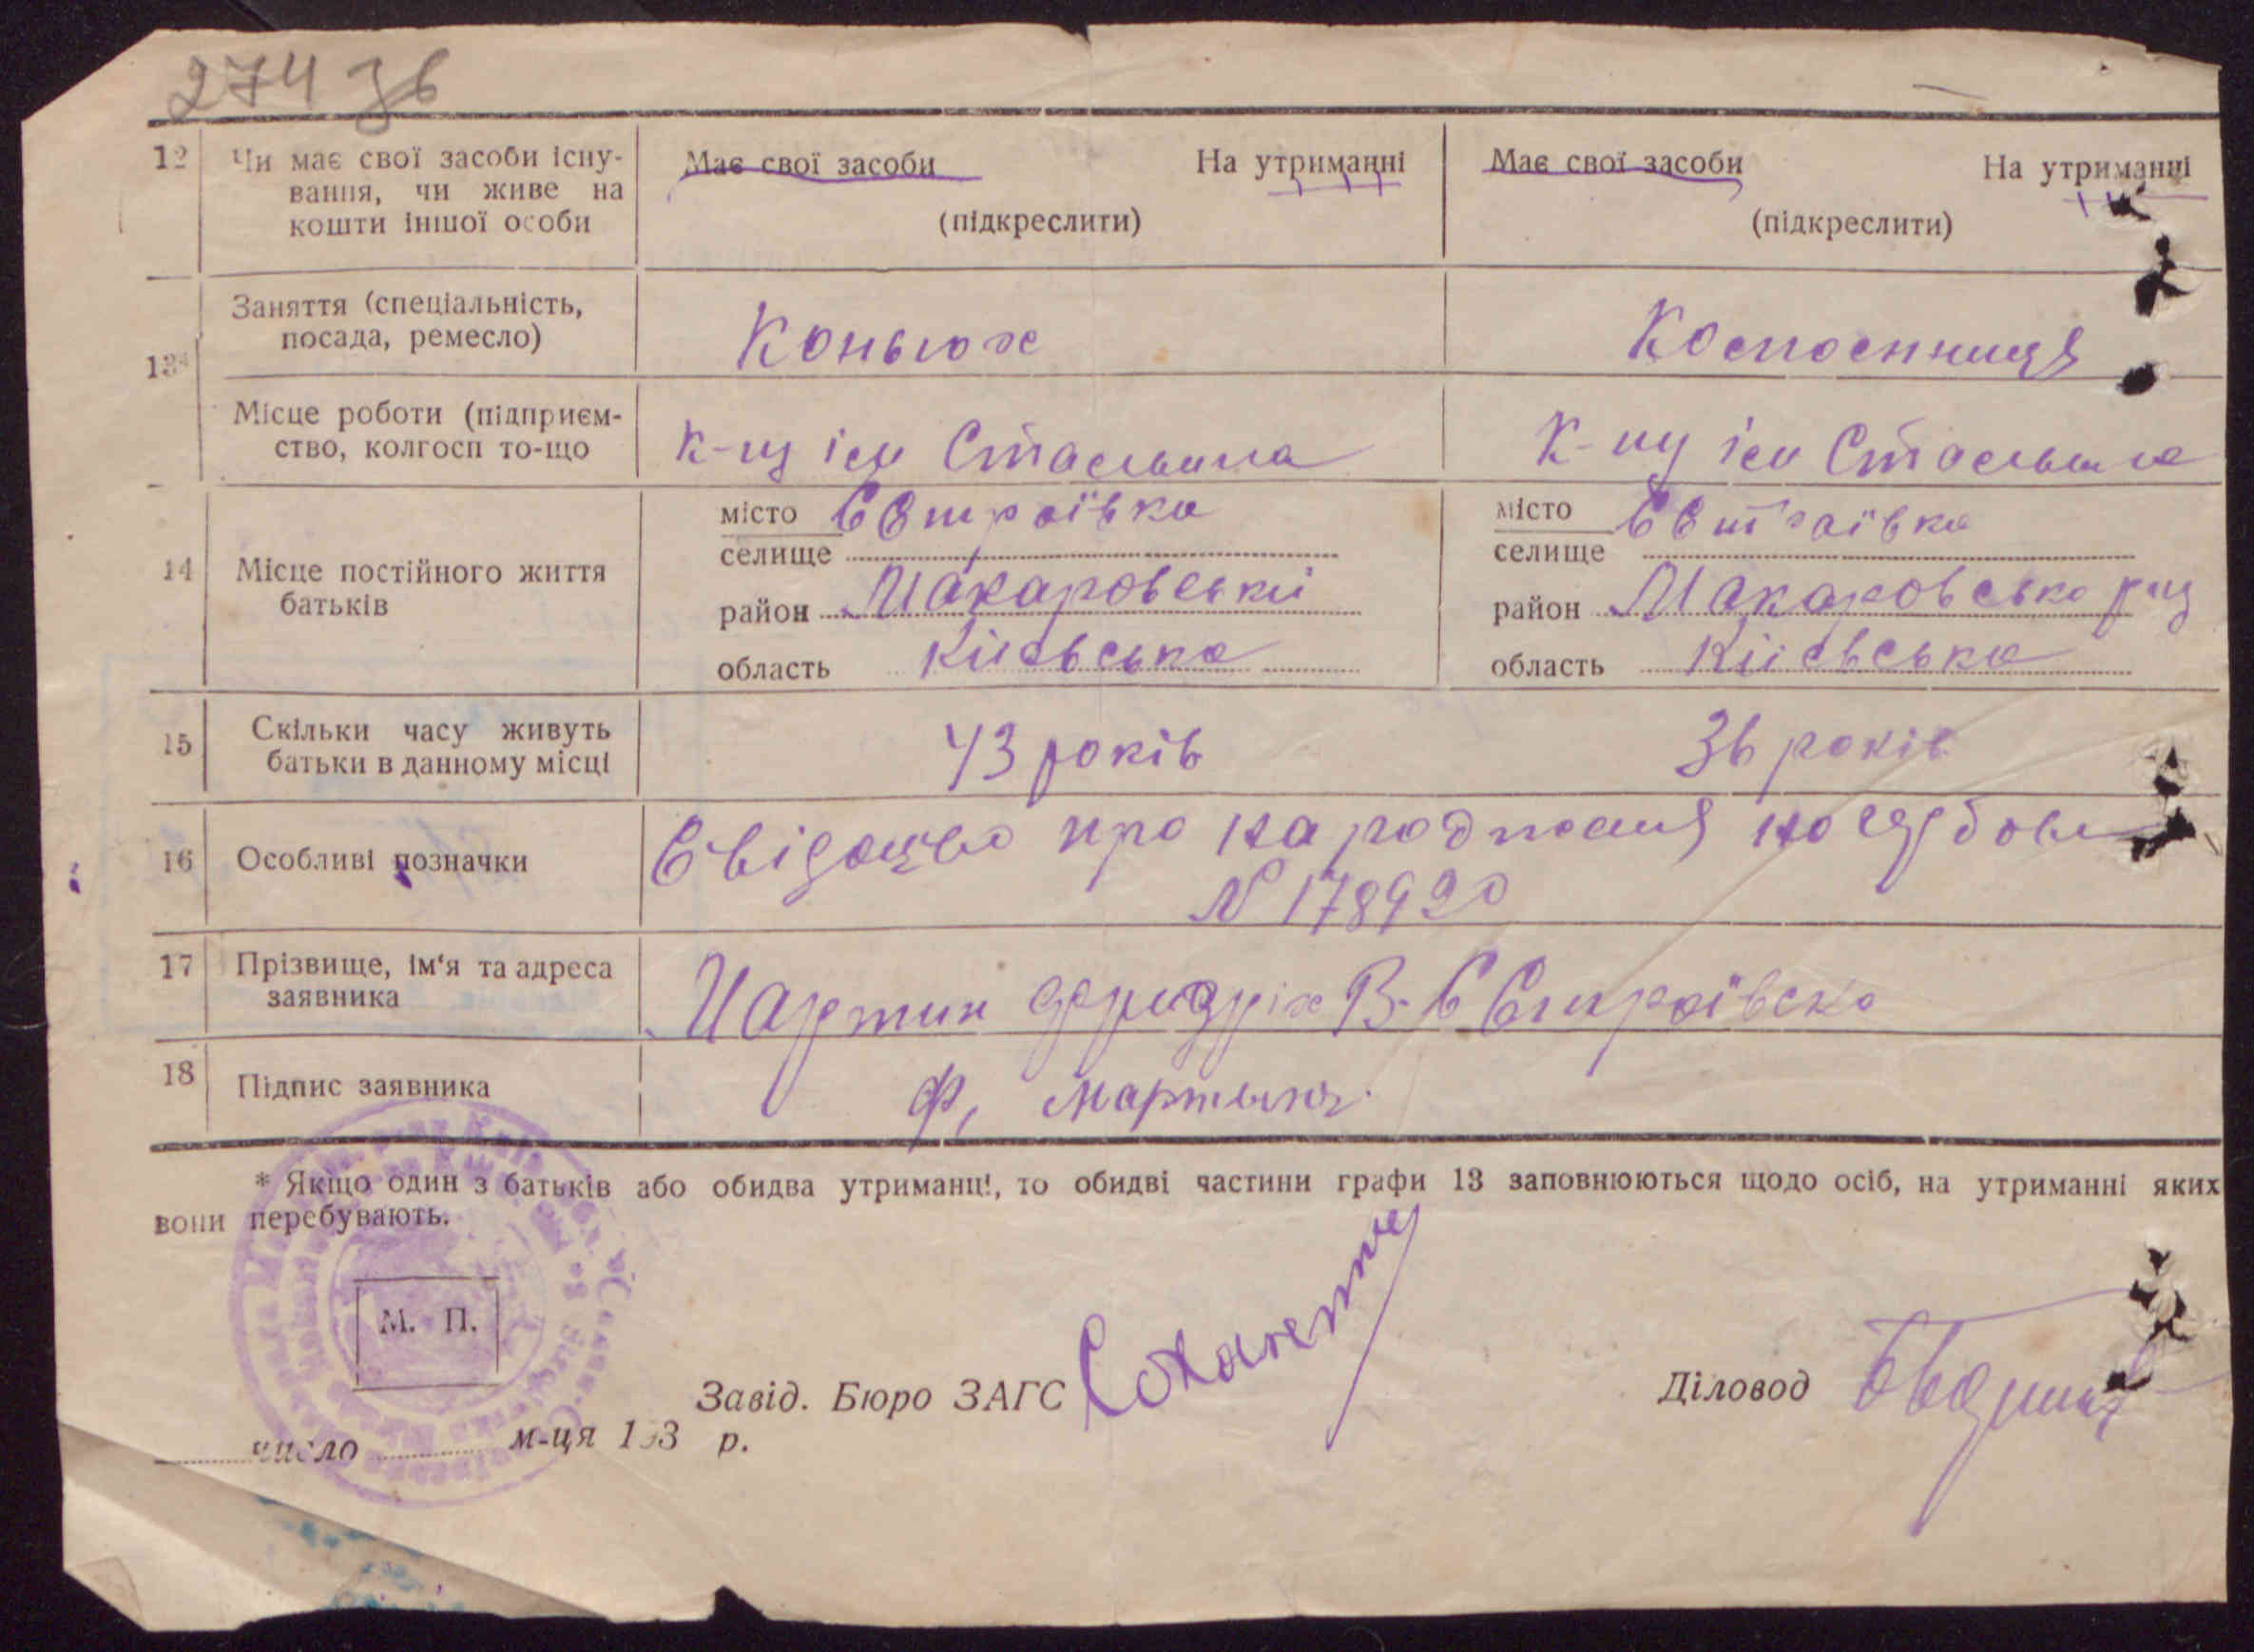 274 зв
12 Чи має свої засоби існу-
вання, чи живе на
кошти іншої особи
Має свої засоби На утриманні
(підкреслити)
Має свої засоби На утриманні
(підкреслити)
13*
Заняття (спеціальність,
посада, ремесло)
Коньюх
Колгоспниця
Місце роботи (підприєм-
ство, колгосп то-що
К-п ім Стальина
К-п ім Стальина
14 Місце постійного життя
батьків
місто Євтроївка
селище
район Макаровський
область Київська
місто Євтроївка
селище
район Макаровсько
область Київська
15 Скільки часу живуть
батьки в данному місці
43 років
36 років
16 Особливі позначки
про народження
N 178920
17 Прізвище, ім'я та адреса
заявника
Мартин Фридріх
18 Підпис заявника
Ф. Мартын
* Якщо один з батьків або обидва утриманці, то обидві частини графи 13 заповнюються щодо осіб, на утриманні яких
вони перебувають.
М. П.
Завід. Бюро ЗАГС
Діловод
число м-ця 193 р.